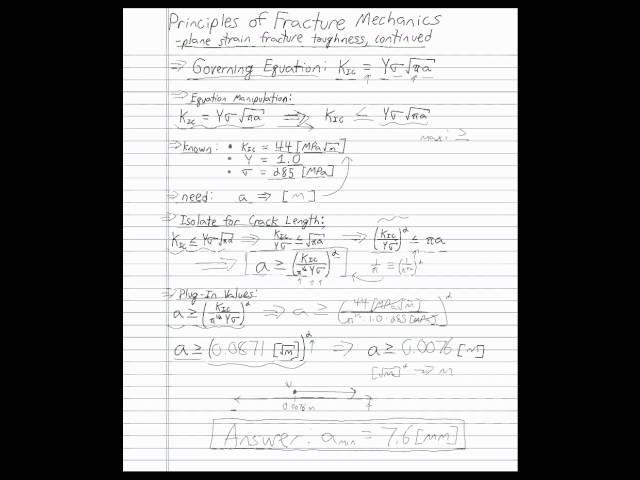 Principles of Fracture Mechanics
-plane strain fracture toughness, continued
⇒ Governing Equation: K_IC = Yσ√πa
⇒ Equation Manipulation:
K_IC = Yσ√πa ⇒ K_IC ≤ Yσ√πa
maxi ≥
⇒ known: • K_IC = 44 [MPa√m]
• Y = 1.0
• σ = 285 [MPa]
⇒ need: a ⇒ [m]
⇒ Isolate for Crack Length:
K_IC ≤ Yσ√πa ⇒ K_IC/Yσ ≤ √πa ⇒ (K_IC/Yσ)² ≤ πa
⇒ a ≥ (K_IC/π^½Yσ)² 1/π ≡ (1/π^½)²
⇒ Plug-In Values:
a ≥ (K_IC/π^½Yσ)² ⇒ a ≥ (44[MPa√m]/π^½·1.0·285[MPa])²
a ≥ (0.0871 [√m])² ⇒ a ≥ 0.0076 [m]
[√m]² → m
0.0076 m
Answer: a_min = 7.6 [mm]